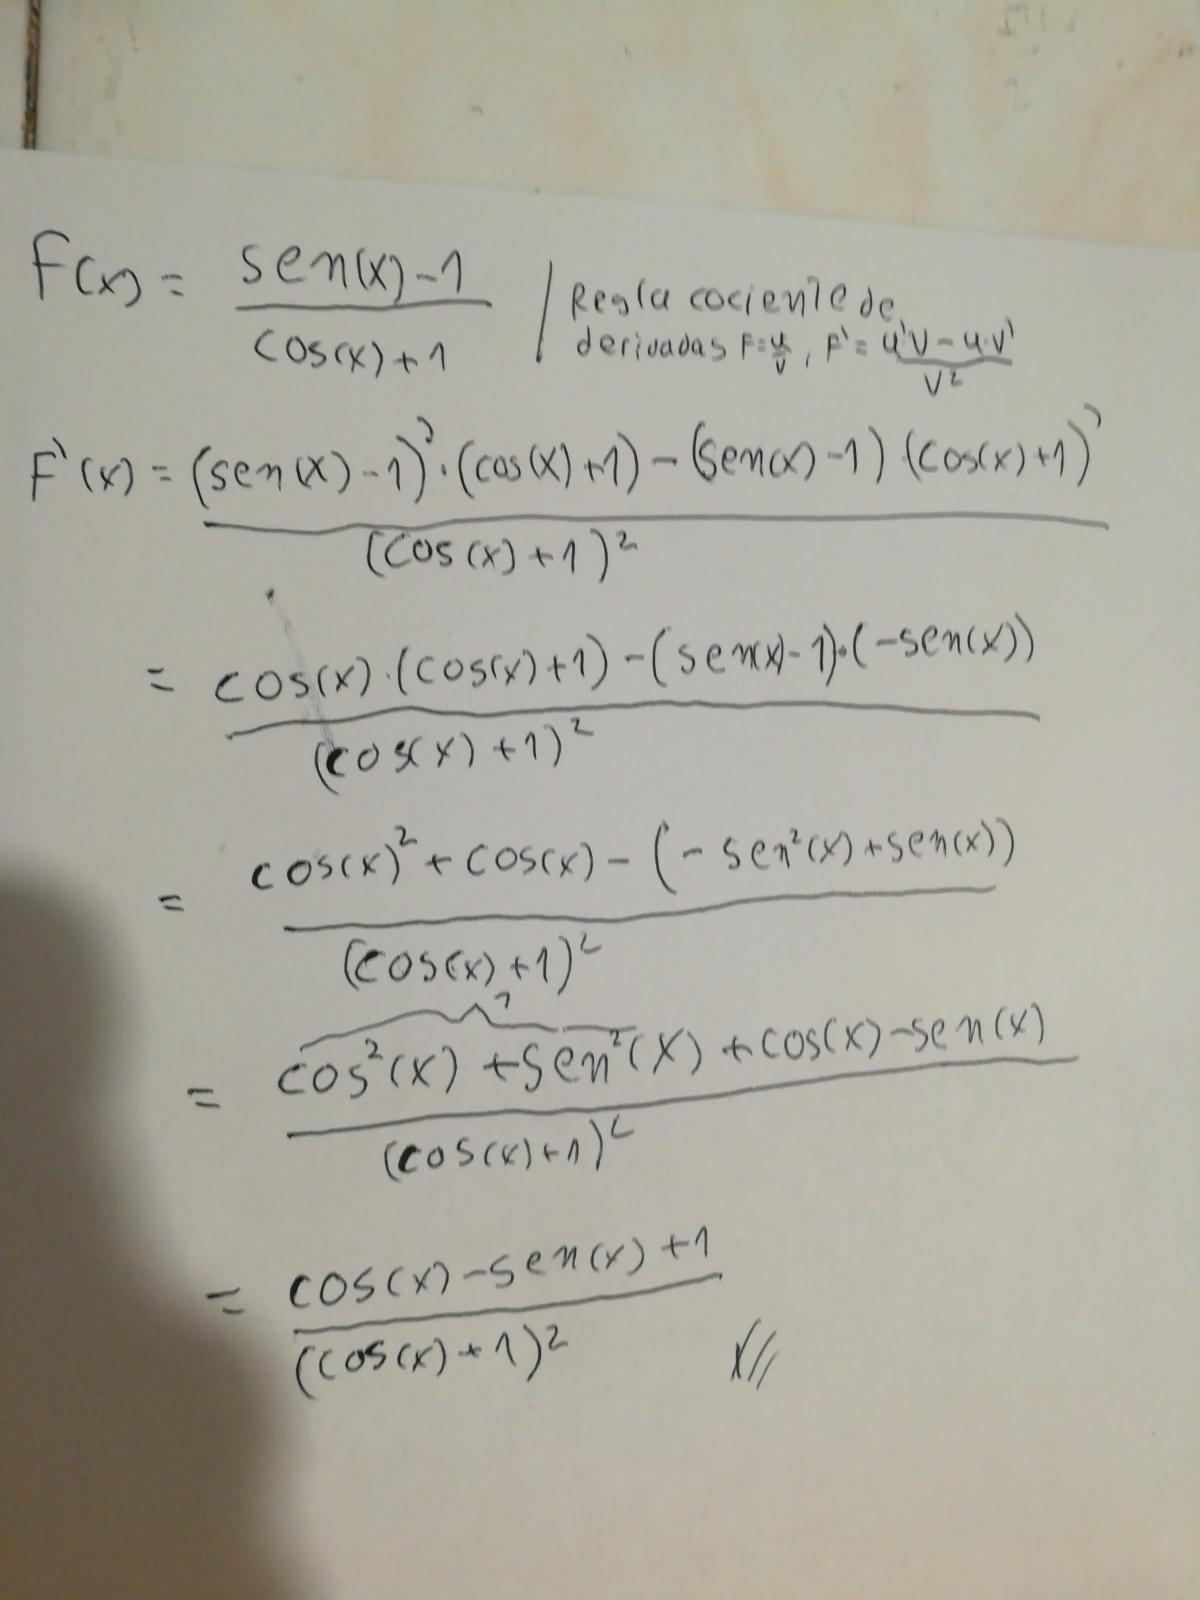 F(x) = sen(x)-1 / cos(x)+1 / Regla cociente de
derivadas F=u/v, F' = u'v - u·v' / v²
F'(x) = (sen(x)-1)'·(cos(x)+1) - (sen(x)-1)·(cos(x)+1)' / (cos(x)+1)²
= cos(x)·(cos(x)+1) - (sen(x)-1)·(-sen(x)) / (cos(x)+1)²
= cos(x)² + cos(x) - (-sen²(x)+sen(x)) / (cos(x)+1)²
1
= cos²(x) + sen²(x) + cos(x) - sen(x) / (cos(x)+1)²
= cos(x) - sen(x) + 1 / (cos(x)+1)²